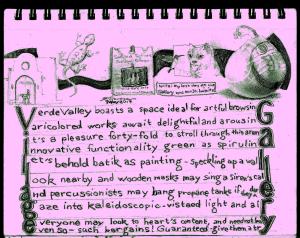 Verde Valley boasts a space ideal for artful browsin
Varicolored works await delightful and arousin
It's a pleasure forty-fold to stroll through this aren
Innovative functionality green as spirulin
Let's behold batik as painting - speckling up a wal
Look nearby and wooden masks may sing a siren's cal
And percussionists may bang propane tanks if they
Gaze into kaleidoscopic-vistaed light and al
Everyone may look to heart's content, and need not
Even so - such bargains! Guaranteed - give them a tr
Village
Gallery